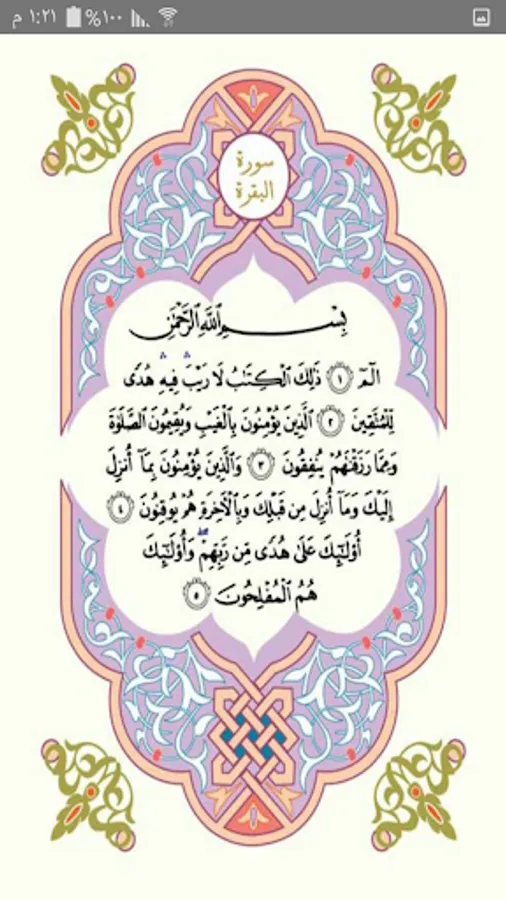 ١:٢١ م %١٠٠
سورة
البقرة
بِسْمِ ٱللَّهِ ٱلرَّحْمَٰنِ
الٓمٓ ١ ذَٰلِكَ ٱلْكِتَٰبُ لَا رَيْبَ ۛ فِيهِ ۛ هُدًى
لِّلْمُتَّقِينَ ٢ ٱلَّذِينَ يُؤْمِنُونَ بِٱلْغَيْبِ وَيُقِيمُونَ ٱلصَّلَوٰةَ
وَمِمَّا رَزَقْنَٰهُمْ يُنفِقُونَ ٣ وَٱلَّذِينَ يُؤْمِنُونَ بِمَآ أُنزِلَ
إِلَيْكَ وَمَآ أُنزِلَ مِن قَبْلِكَ وَبِٱلْءَاخِرَةِ هُمْ يُوقِنُونَ ٤
أُو۟لَٰٓئِكَ عَلَىٰ هُدًى مِّن رَّبِّهِمْ ۖ وَأُو۟لَٰٓئِكَ
هُمُ ٱلْمُفْلِحُونَ ٥